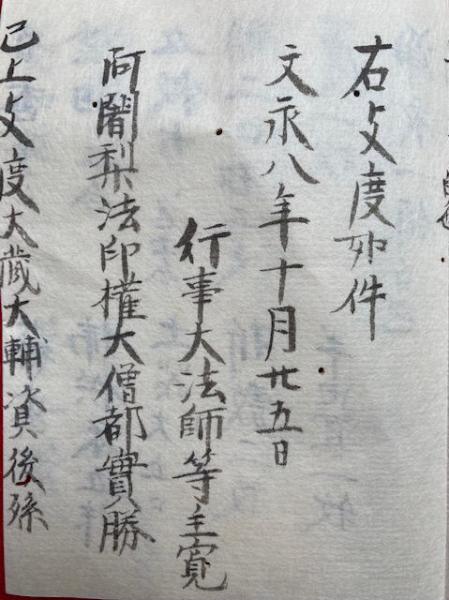 右支度如件
文永八年十月廿五日
行事大法師等主寛
阿闍梨法印権大僧都實勝
已上支度大蔵大輔資後孫